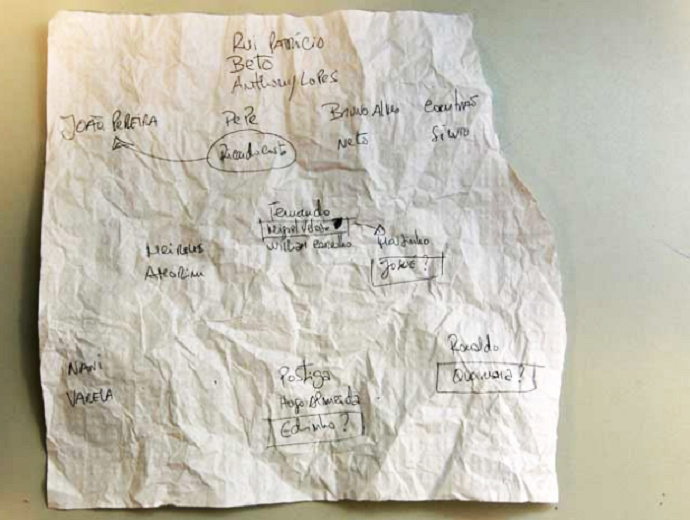 Rui Patrício
Beto
Anthony Lopes
João Pereira Pepe Bruno Alves Coentrão
Ricardo Costa Neto Sílvio
Fernando
Miguel Veloso Martinho
William Carvalho
Meireles Josué?
Amorim
Ronaldo
Nani Postiga Quaresma?
Varela Hugo Almeida
Edinho?